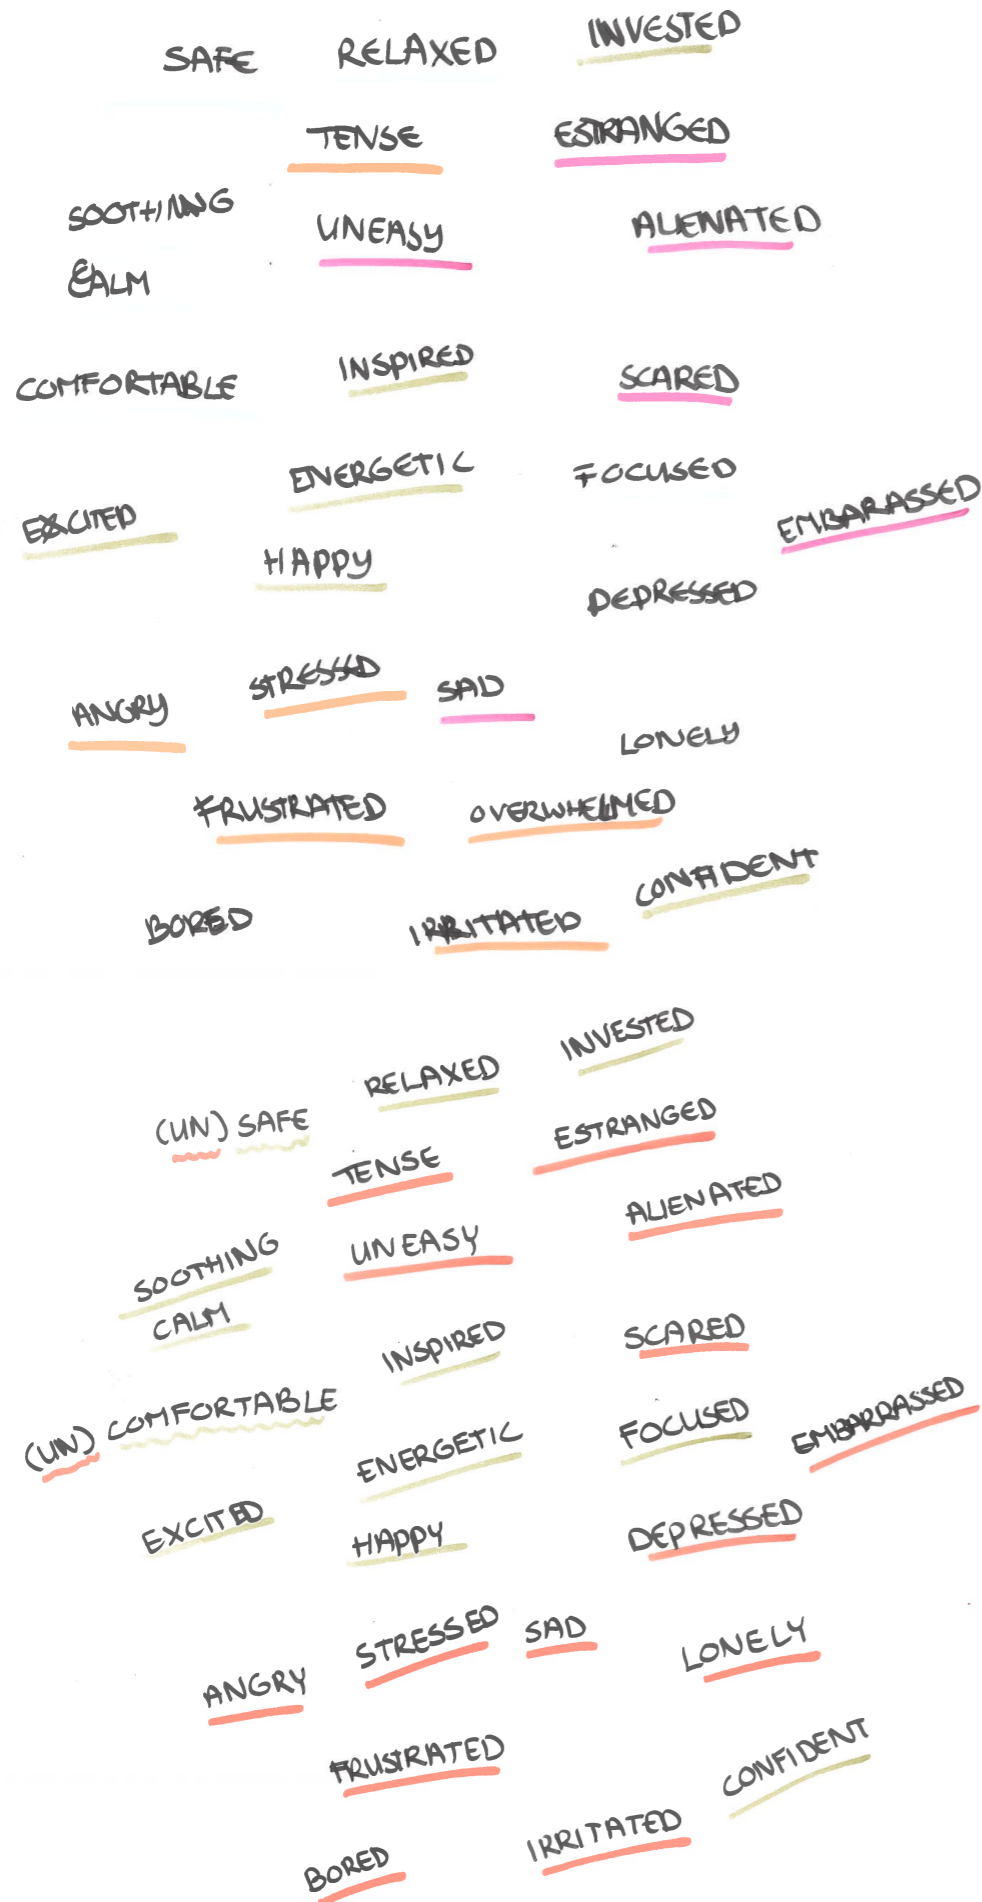 SAFE RELAXED INVESTED
TENSE ESTRANGED
SOOTHING UNEASY ALIENATED
CALM
COMFORTABLE INSPIRED SCARED
ENERGETIC FOCUSED
EXCITED EMBARASSED
HAPPY
DEPRESSED
ANGRY STRESSED SAD
LONELY
FRUSTRATED OVERWHELMED
BORED IRRITATED CONFIDENT
INVESTED
RELAXED
(UN) SAFE ESTRANGED
TENSE
ALIENATED
SOOTHING UNEASY
CALM
INSPIRED SCARED
(UN) COMFORTABLE
ENERGETIC FOCUSED EMBARRASSED
EXCITED HAPPY DEPRESSED
STRESSED SAD LONELY
ANGRY
FRUSTRATED CONFIDENT
BORED IRRITATED